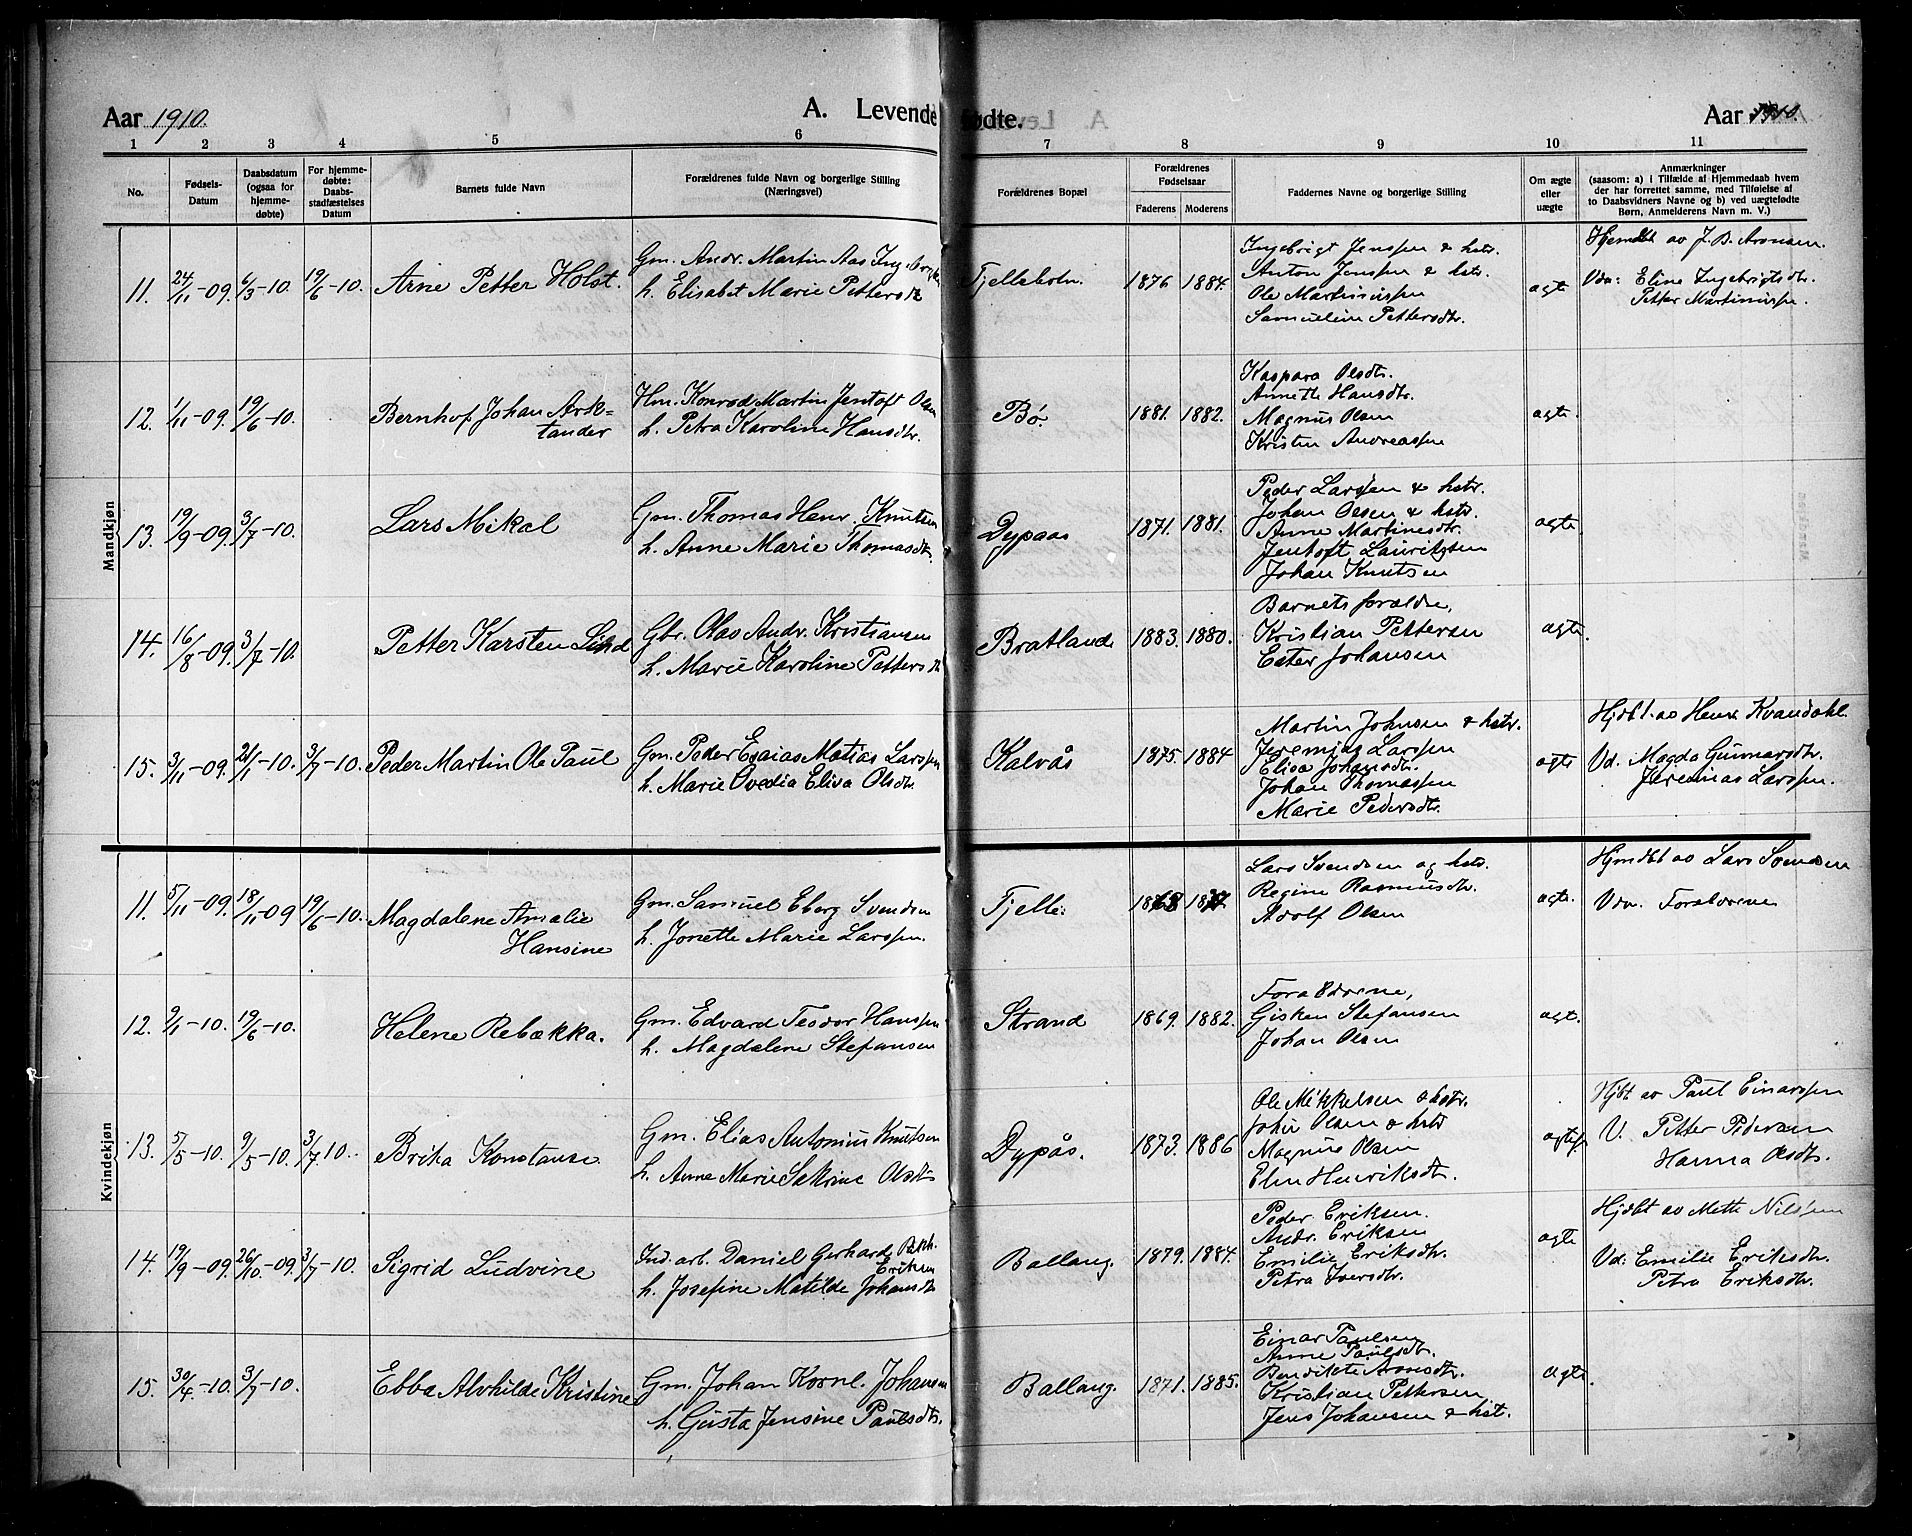 Aar 1910. A. Levendefødte. Aar 1910.
1 2 3 4 5 6 7 8 9 10 11
No.
Fødsels-Datum
Daabsdatum (ogsaa for hjemmedøbte)
For hjemmedøbte: Daabsstadfæstelses Datum
Barnets fulde Navn
Forældrenes fulde Navn og borgerlige Stilling (Næringsvei)
Forældrenes Bopæl
Forældrenes Fødselsaar
Faderens Moderens
Faddernes Navne og borgerlige Stilling
Om ægte eller uægte
Anmærkninger
(saasom: a) i Tilfælde af Hjemmedaab hvem
der har forrettet samme, med Tilføielse af
to Daabsvidners Navne og b) ved uægtefødte
Børn, Anmelderens Navn m. V.)
Mandkjøn
11. 24/11-09. 6/3-10. 19/6-10. Arne Petter Holst.
Gm. Andr. Martin Aas Ingebrigtsen
h. Elisabet Marie Pettersdtr
Tjelleholm. 1876 1884.
Ingebrigt Jenssen & hstr.
Anton Jenssen & hstr.
Ole Martinussen
Samueline Pettersdtr.
ægte
Hjemdbt av J. B. Aronsen.
Vdn: Eline Ingebrigtsdtr.
Petter Martinussn.
12. 1/11-09. 19/6-10. Bernhof Johan Ark-
tander
Hm. Konrad Martin Jentoft Olsen
h. Petra Karoline Hansdtr.
Bø. 1881. 1882.
Kaspara Olsdtr.
Annette Hansdtr.
Magnus Olsen
Kristen Andreassen
ægte.
13. 19/9-09. 3/7-10. Lars Mikal
Gm. Thomas Henr. Knutsen
h. Anne Marie Thomasdtr.
Dypaas 1871. 1881.
Peder Larssen & hstr.
Johan Olsen & hstr.
Anne Martinesdtr.
Jentoft Lauritzsen
Johan Knutsen
ægte
14. 16/8-09. 3/7-10. Petter Karsten Lind
Gbr. Olas Andr. Kristiansen
h. Marie Karoline Pettersdtr
Bratland 1883. 1880.
Barnets forældre,
Kristian Pettersen
Ester Johansen
ægte
15. 3/11-09. 21/1-10. 3/7-10. Peder Martin Ole Paul
Gm. Peder Esaias Matias Larssen
h. Marie Ovedia Elisa Olsdtr.
Kalvås 1875. 1884
Martin Johnsen & hstr.
Jeremias Larssen
Elisa Johansdtr.
Johan Thomassen
Marie Pedersdtr.
ægte
Hjdbt. av Henr. Kvandahl.
Vd. Magda Gunnarsdtr.
Jeremias Larssen.
Kvindekjøn
11. 5/11-09. 18/11-09 19/6-10. Magdalene Amalie
Hansine
Gm. Samuel Eberg Svendsen
h. Jonette Marie Larssen.
Tjelle.
Lars Svendsen og hstr.
Regine Rasmusdtr.
Adolf Olsen
ægte.
Hjmdbt av Lars Svendsen
Vdn. Forældrene
12. 9/1-10. 19/6-10. Helene Rebækka.
Gm. Edvard Teodor Hanssen
h. Magdalene Stefansen
Strand 1869. 1882.
Forældrene,
Gisken Stefansen
Johan Olsen
ægt.
13. 5/5-10. 9/5-10. 3/7 10. Brita Konstanse
Gm. Elias Antonius Knutsen
h. Anne Marie Sakrine Olsdtr
Dypås. 1873. 1886
Ole Mikkelsen & hstr.
John Olsen & hstr
Magnus Olsen
Elen Henriksdtr.
ægte
Hjbt av Paul Einarssen
V. Petter Pedersen
Hanna Olsdtr.
14. 19/9-09. 26/10-09. 3/7-10. Sigrid Ludvine
Ind. arb. Daniel Gerhard Eriksen
h. Josefine Matilde Johansdtr
Ballang. 1879. 1884.
Peder Eriksen.
Andr. Eriksen
Emilie Eriksdtr.
Petra Iversdtr.
ægte
Hjdbt av Mette Nilssen
Vd. Emilie Eriksdtr.
Petra Eriksdtr.
15. 30/4-10. 3/7-10. Ebba Alvhilde Kristine
Gm. Johan Kornl. Johansen
h. Gusta Jensine Paulsdtr.
Ballang. 1871. 1885.
Einar Paulsen
Anne Paulsdtr.
Bendikte Aronsdtr.
Kristian Pettersen
Jens Johansen & hst.
ægte